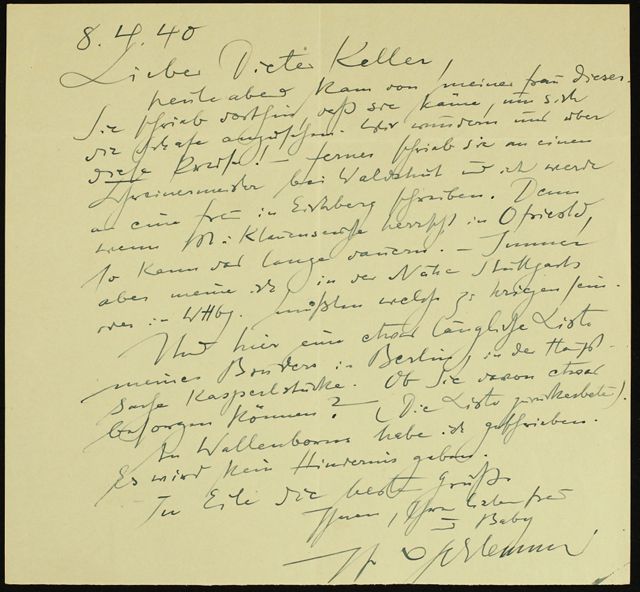 8.4.40
Lieber Dieter Keller,
heute abend kam von meiner Frau dieses.
Sie schrieb dorthin, daß sie käme, um sich
die Schafe anzusehen. Wir wundern uns über
diese Preise! – Ferner schrieb sie an einen
Schreinermeister bei Waldshut und ich werde
an eine Frau in Eichberg schreiben. Denn
wenn M. u. Klauenseuche herrscht in Ofriesld,
so kann das lange dauern. – Immer
aber meine ich, in der Nähe Stuttgarts
oder in Wttbg. müßten welche zu kriegen sein.
Und hier eine etwas längliche Liste
meines Bruders in Berlin, in der Haupt-
sache Kasperlstücke. Ob Sie davon etwas
besorgen können? (Die Liste zurückerbeten).
An Wallenborn habe ich geschrieben.
Es wird kein Hindernis geben.
In Eile die besten Grüße
Ihnen, Ihrer lieben Frau
u Baby
Ihr O Schlemmer